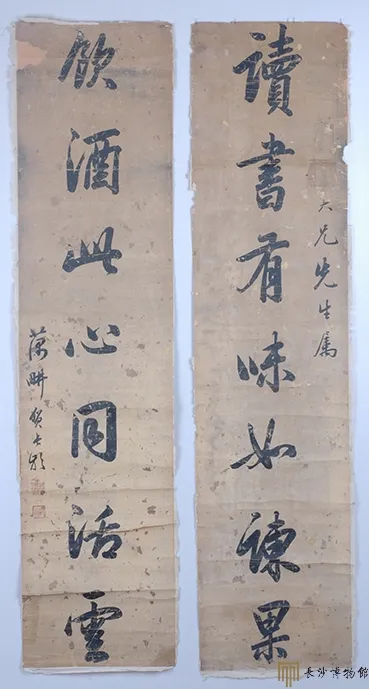 讀書有味如諫果
大兄先生屬
飲酒此心同活雲
藕畊賀長齡
長沙博物館